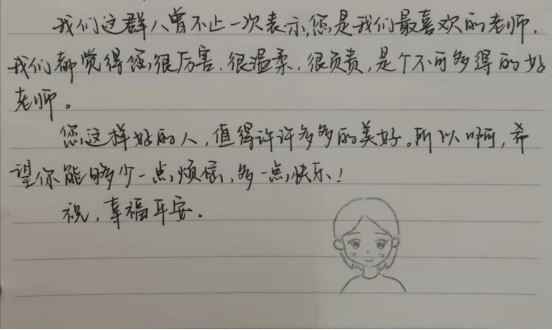 我们这群人曾不止一次表示,您是我们最喜欢的老师,
我们都觉得您很厉害、很温柔、很负责,是个不可多得的好
老师。
您这样好的人,值得许许多多的美好。所以啊,希
望你能够少一点烦恼,多一点快乐!
祝,幸福平安.